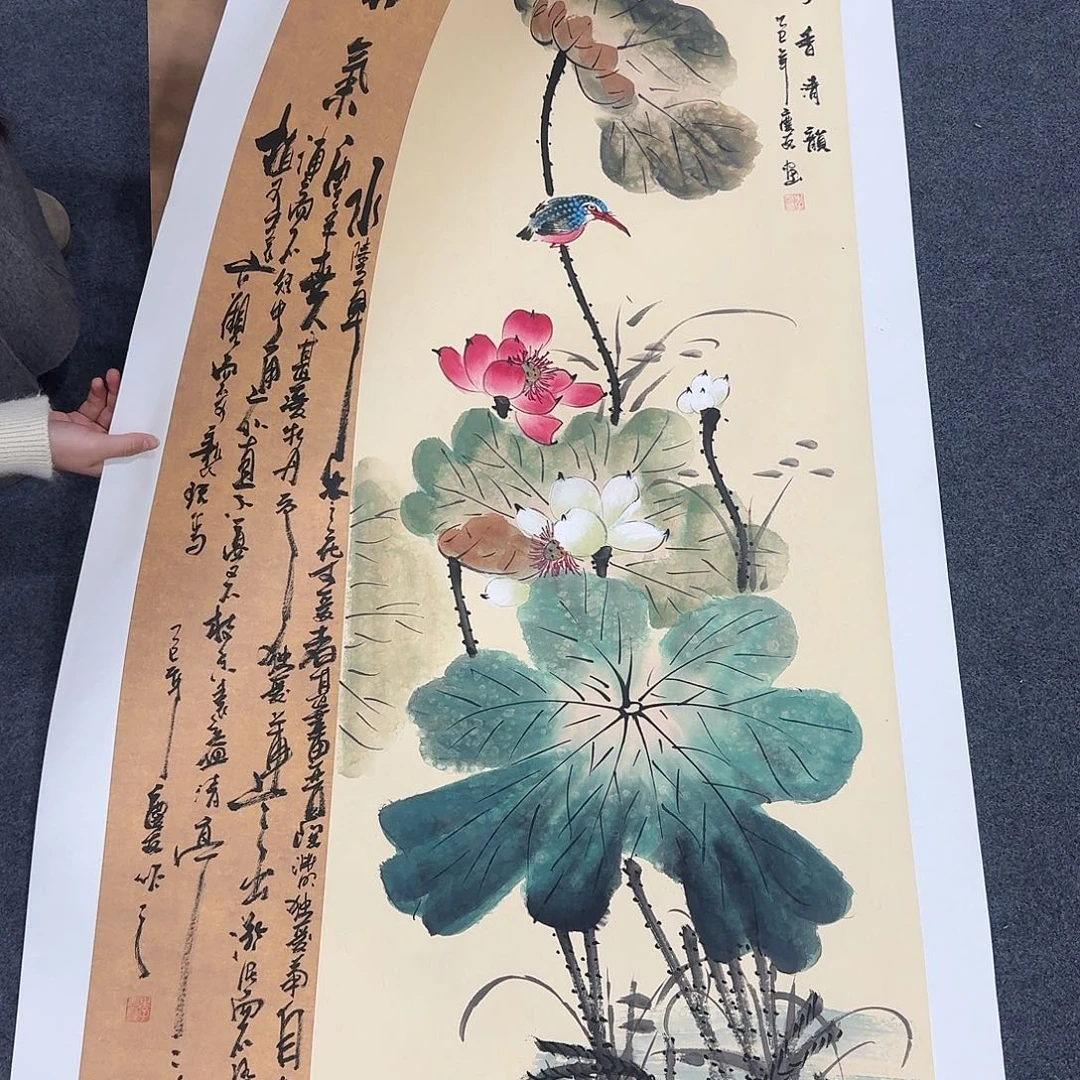 香清韻
乙巳年
氣
水陸草木之花可愛者甚蕃晉陶淵明獨愛菊自
唐來世人甚愛牡丹予獨愛蓮之出淤泥而不
漣而不妖中通外直不蔓不枝香遠益清亭
植可遠觀而不可褻玩焉
乙巳年